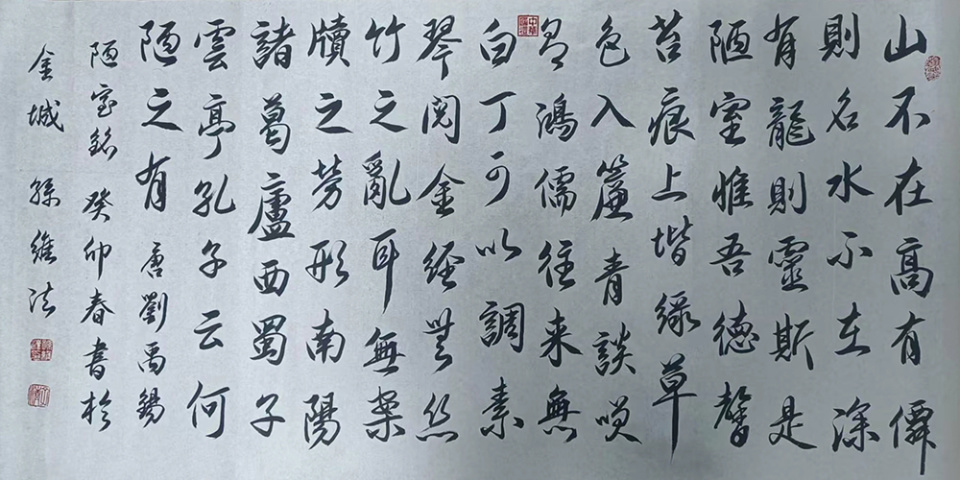 山不在高有僊
則名水不在深
有龍則靈斯是
陋室惟吾德馨
苔痕上堦綠草
色入簾青談咲
有鴻儒往来無
白丁可以調素
琴閱金經無丝
竹之亂耳無案
牘之勞形南陽
諸葛廬西蜀子
雲亭孔子云何
陋之有 唐劉禹錫
陋室銘 癸卯春書於
金城 孫維法